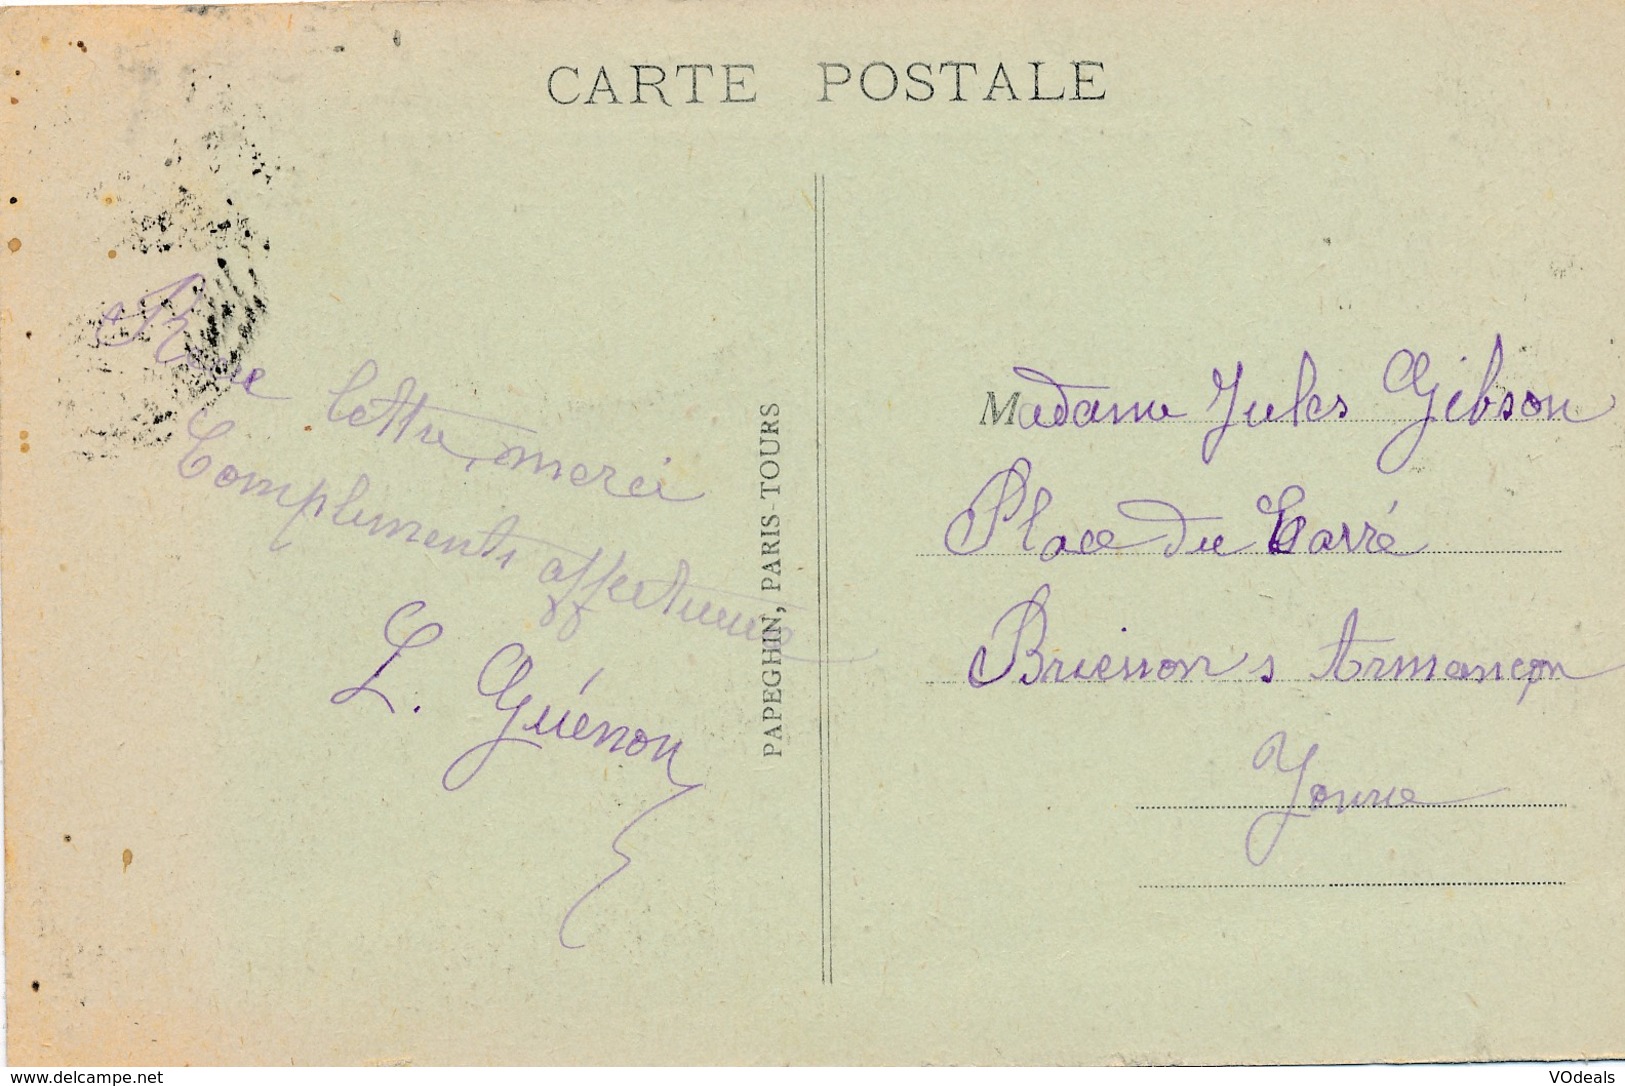 CARTE POSTALE
Reçue lettre, merci
Compliments affectueux
L. Guénon
PAPEGHIN, PARIS-TOURS
Madame Jules Gibson
Place du Carré
Brienon s Armançon
Yonne
www.delcampe.net
VOdeals